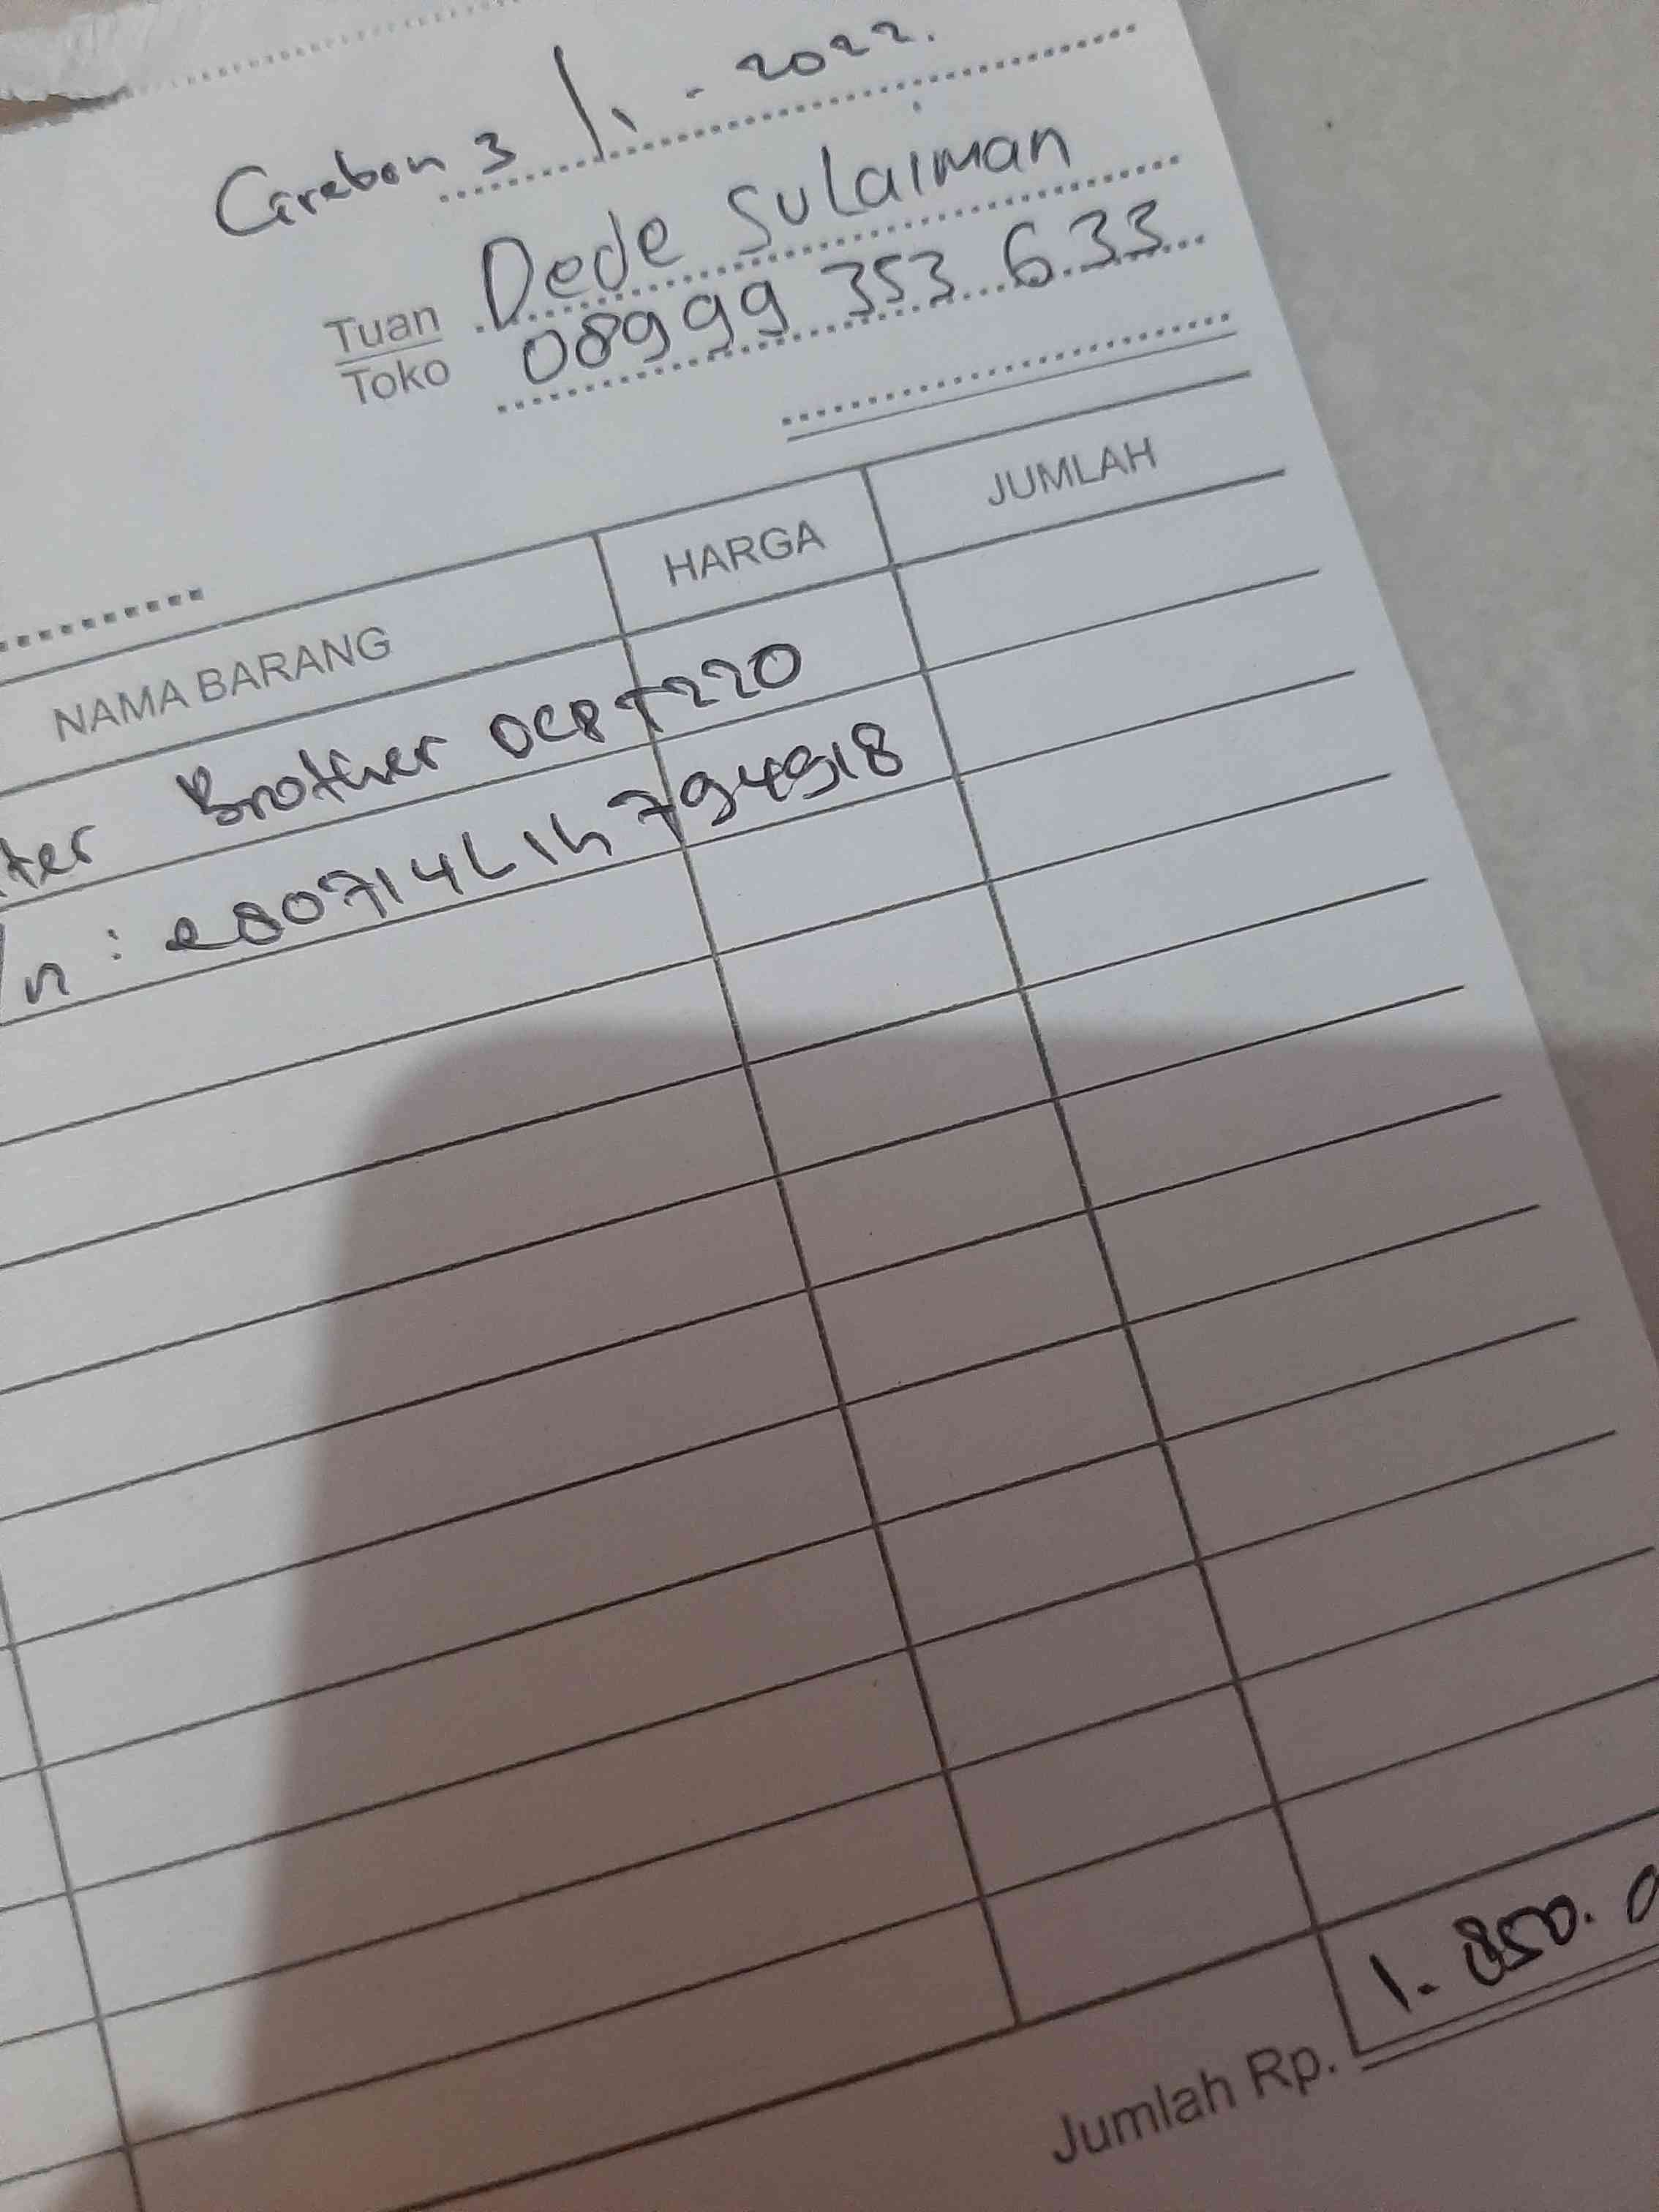 Cirebon 3/1 - 2022.
Tuan Dede Sulaiman
Toko 08999 353 633
NAMA BARANG HARGA JUMLAH
ter Brother DCP T220
/n : E80714L1H794918
Jumlah Rp. 1.850.0